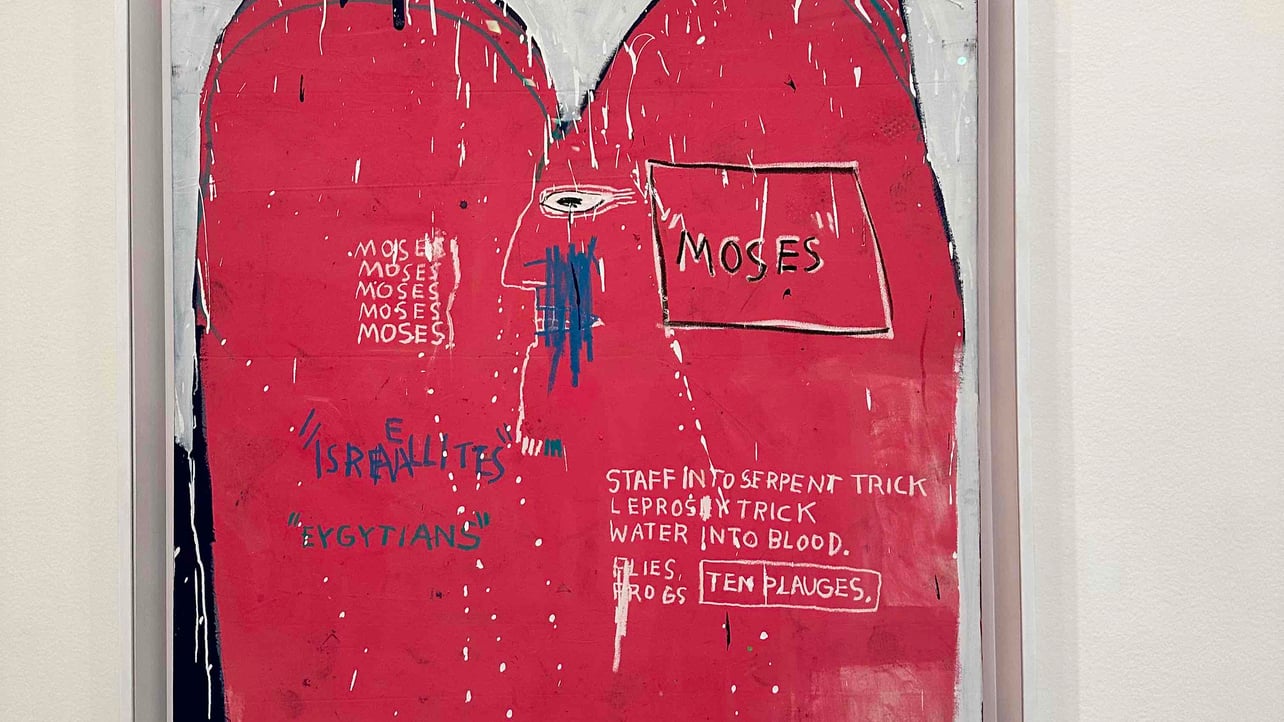 "MOSES"
MOSES
MOSES
MOSES
MOSES
MOSES
"ISRAELLITES"
"EYGYTIANS"
STAFF INTO SERPENT TRICK
LEPROSY TRICK
WATER INTO BLOOD.
FLIES,
FROGS
TEN PLAUGES.